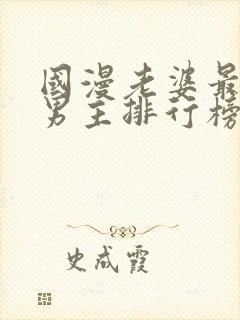 國漫老婆最
男主排行榜
史成霞